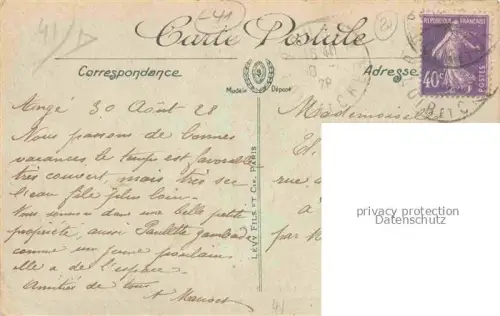 Carte Postale
Correspondance
Adresse
Modèle Déposé
RÉPUBLIQUE FRANÇAISE
40c
POSTES
30 Août 28
Mademoiselle
Nous passons de bonnes
vacances, le temps est favorable
très couvert, mais très sec
l'eau file plus loin
Nous sommes dans une belle petite
propriété, aussi Paulette gambade
comme un jeune poulain
elle a de l'espace
Amitiés de tous
LÉVY FILS ET CIE, PARIS
rue
à
par
privacy protection
Datenschutz
41